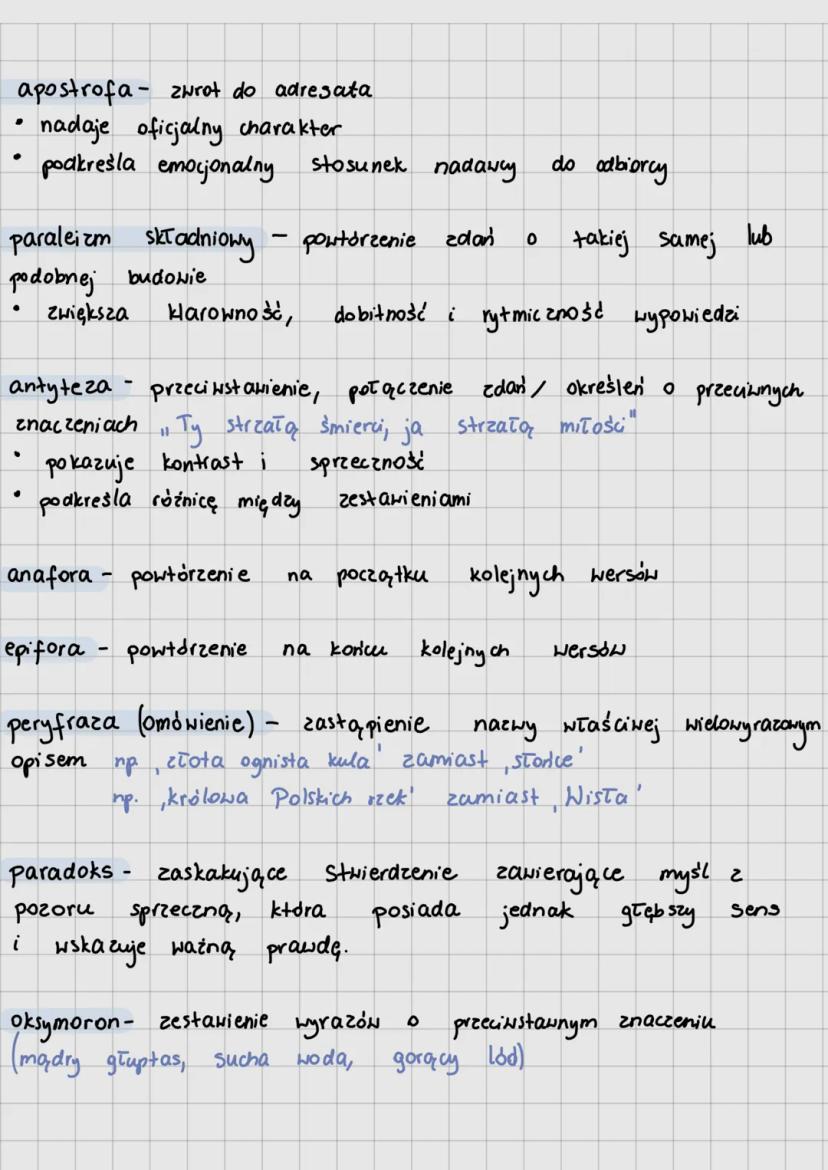 apostrofa - zwrot do adresata
• nadaje oficjalny charakter
• podkreśla emocjonalny stosunek nadawcy do odbiorcy
paraleizm składniowy - powtórzenie zdań o takiej samej lub
podobnej budowie
• zwiększa klarowność, dobitność i rytmiczność wypowiedzi
antyteza - przeciwstawienie, połączenie zdań / określeń o przeciwnych
znaczeniach „Ty strzałą śmierci, ja strzałą miłości"
• pokazuje kontrast i sprzeczność
• podkreśla różnicę między zestawieniami
anafora - powtórzenie na początku kolejnych wersów
epifora - powtórzenie na końcu kolejnych wersów
peryfraza (omówienie) - zastąpienie nazwy właściwej wielowyrazowym
opisem np ‚złota ognista kula' zamiast ‚słońce'
np. ‚królowa Polskich rzek' zamiast ‚Wisła'
paradoks - zaskakujące stwierdzenie zawierające myśl z
pozoru sprzeczną, która posiada jednak głębszy sens
i wskazuje ważną prawdę.
oksymoron - zestawienie wyrazów o przeciwstawnym znaczeniu
(mądry głuptas, sucha woda, gorący lód)